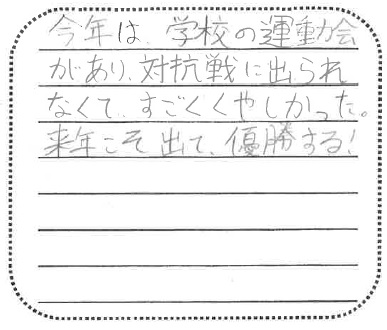 今年は、学校の運動会
があり、対抗戦に出られ
なくて、すごくくやしかった。
来年こそ出て、優勝する!